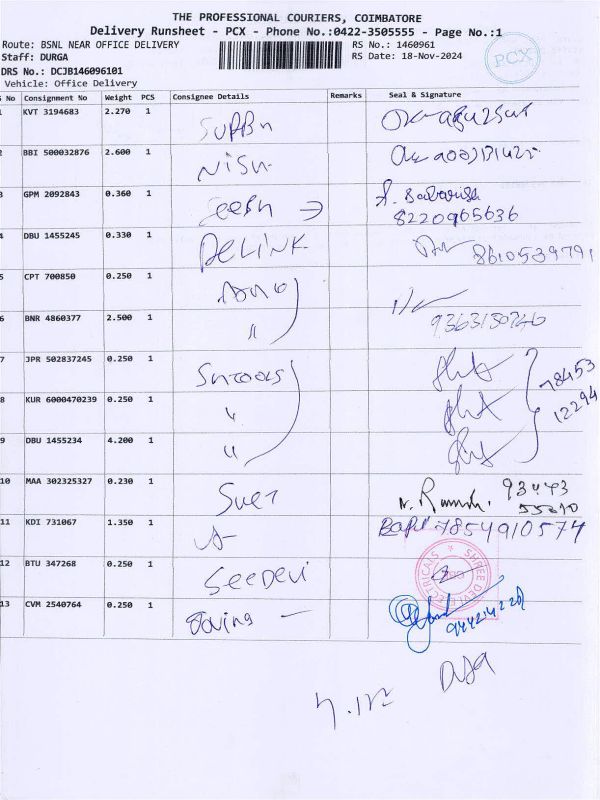 THE PROFESSIONAL COURIERS, COIMBATORE
Delivery Runsheet - PCX - Phone No.:0422-3505555 - Page No.:1
Route: BSNL NEAR OFFICE DELIVERY RS No.: 1460961
Staff: DURGA RS Date: 18-Nov-2024
PCX
DRS No.: DCJB146096101
Vehicle: Office Delivery
No Consignment No Weight PCS Consignee Details Remarks Seal & Signature
KVT 3194683 2.270 1
BBI 500032876 2.600 1
GPM 2092843 0.360 1
8220965636
DBU 1455245 0.330 1 DELINK 8610539791
CPT 700850 0.250 1
BNR 4860377 2.500 1 〃 9363130740
7 JPR 502837245 0.250 1 78453
8 KUR 6000470239 0.250 1 〃 12294
9 DBU 1455234 4.200 1 〃
10 MAA 302325327 0.230 1 93443
11 KDI 731067 1.350 1 7854910574
12 BTU 347268 0.250 1 SeeDevi SHREE DEVI ELECTRICALS
13 CVM 2540764 0.250 1